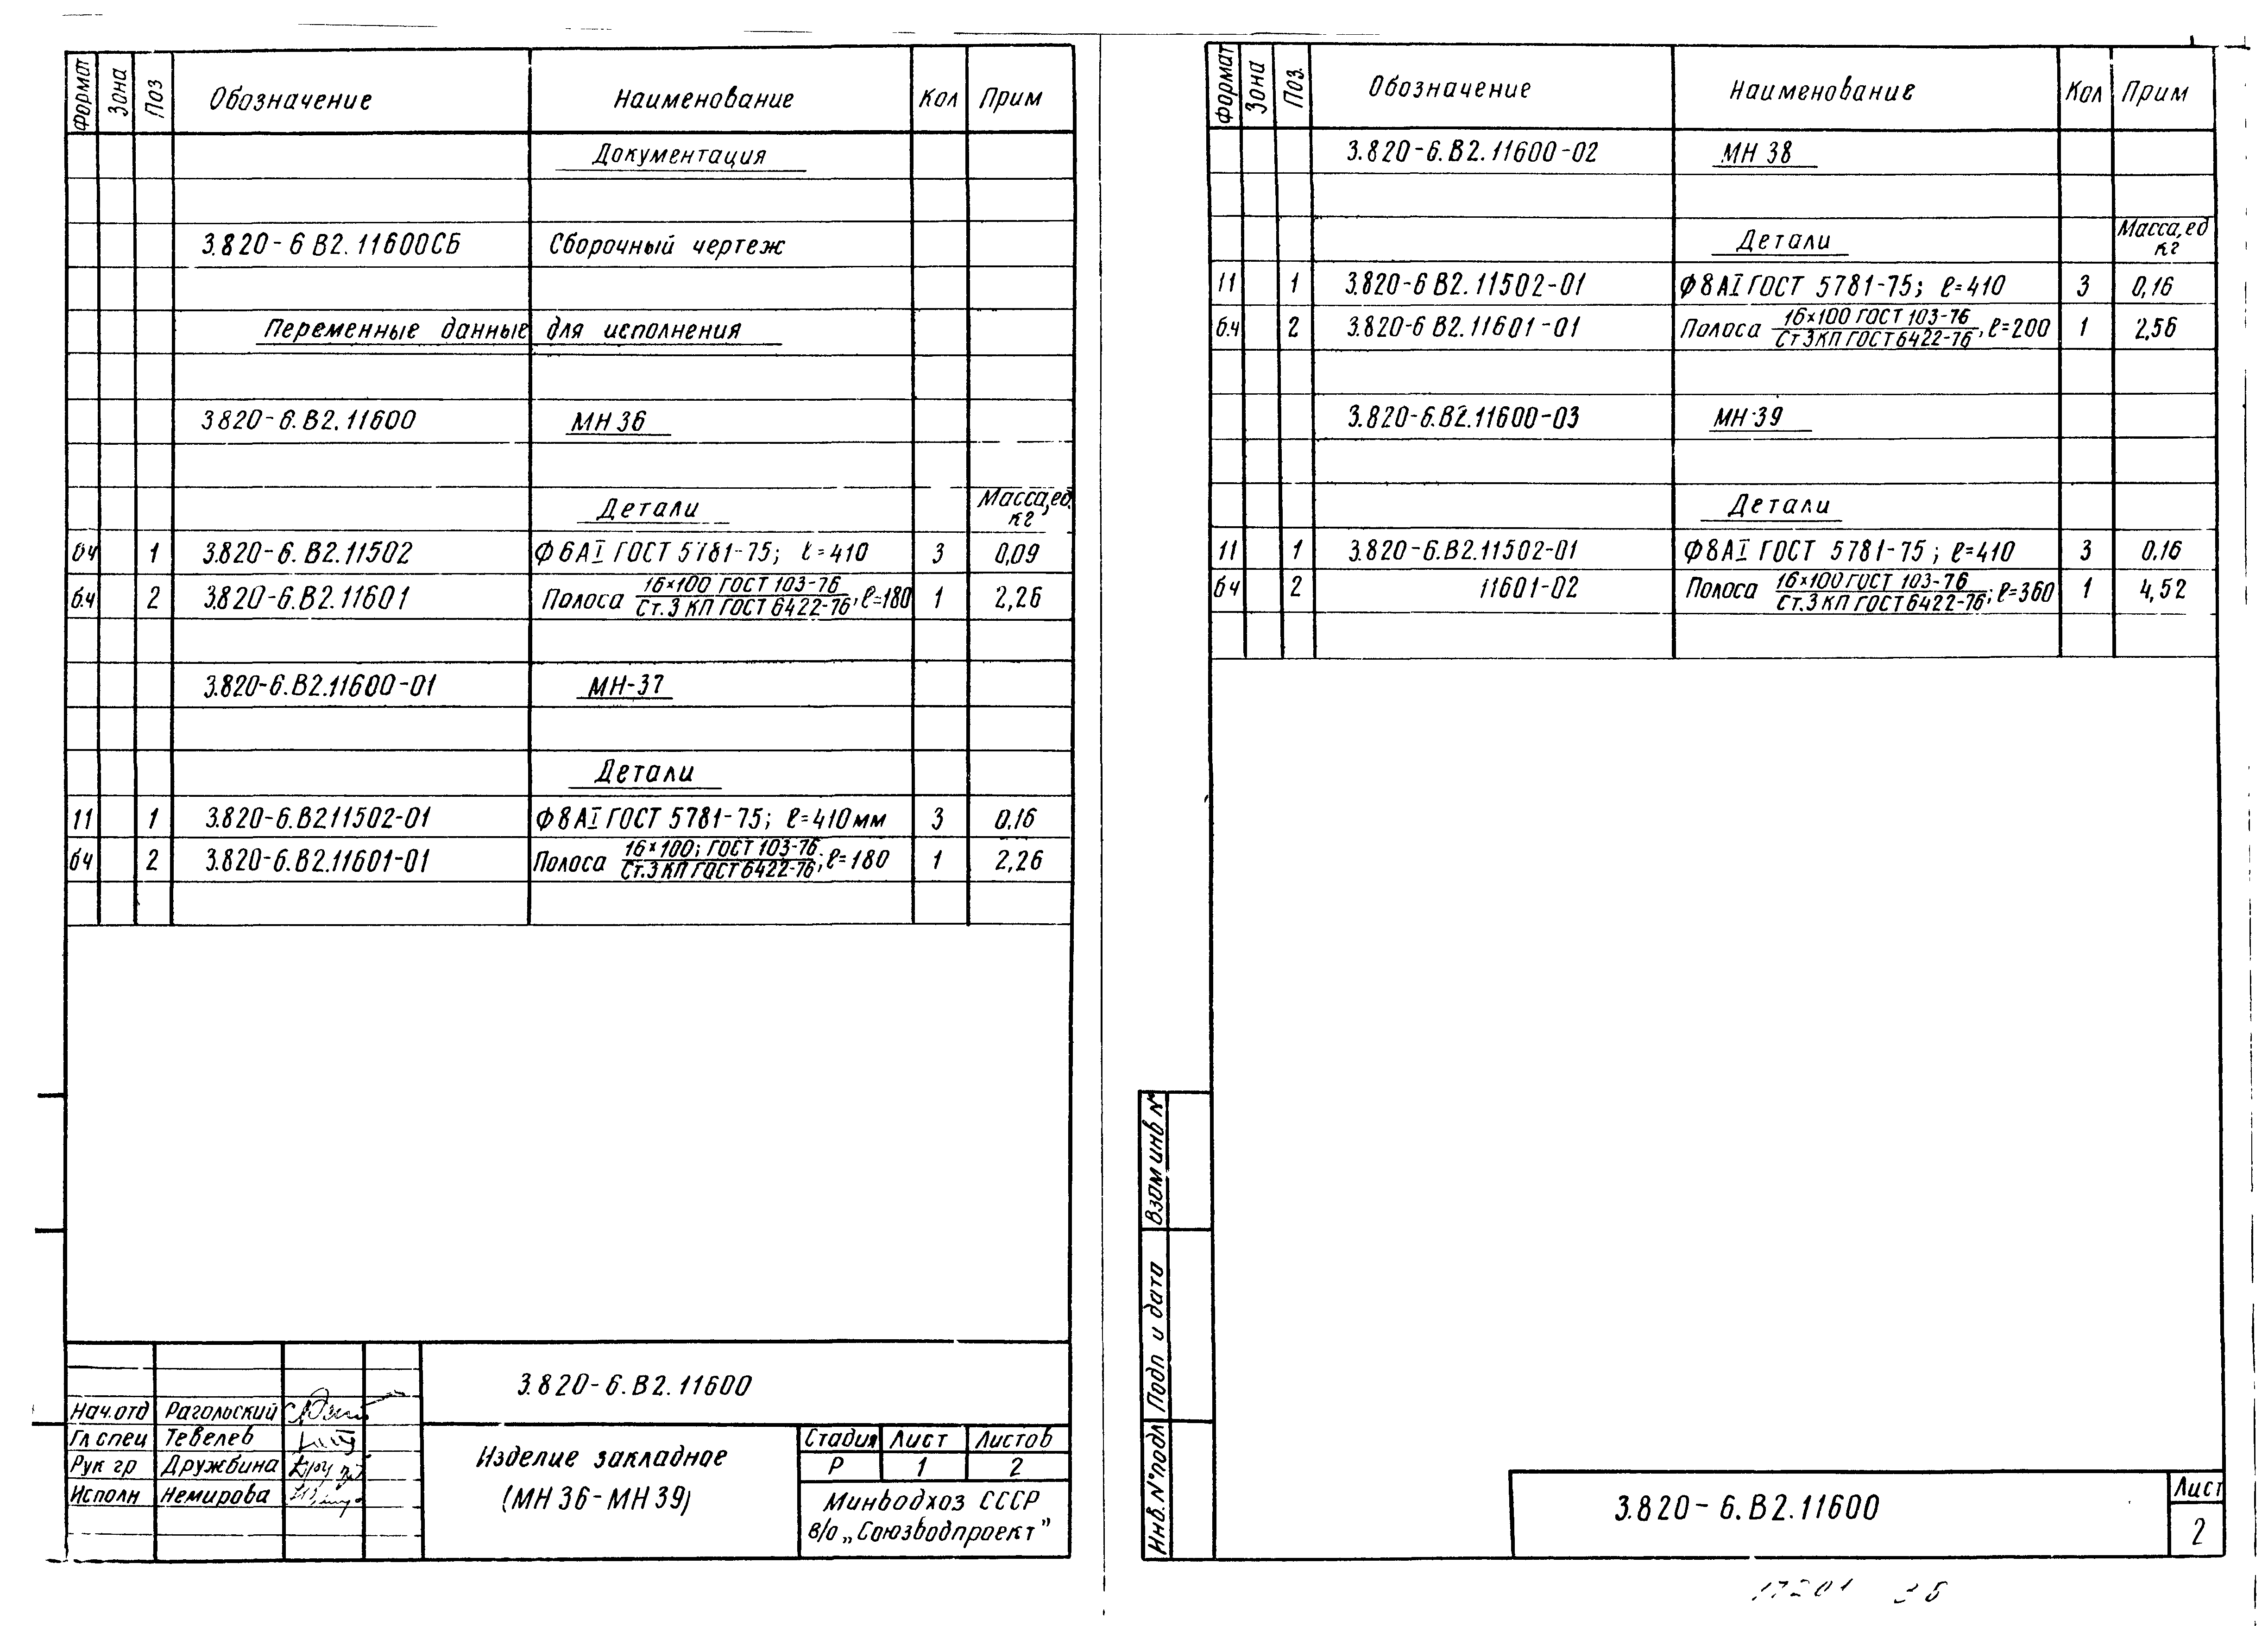 Формат Зона Поз Обозначение Наименование Кол Прим
Документация
3.820-6 В2. 11600СБ Сборочный чертеж
Переменные данные для исполнения
3 820-6. В2. 11600 МН 36
Детали Масса, ед. кг
бч 1 3.820-6. В2. 11502 Ф 6АI ГОСТ 5781-75; ℓ=410 3 0,09
б.ч 2 3.820-6. В2. 11601 Полоса 16×100 ГОСТ 103-76 / Ст.3 КП ГОСТ 6422-76, ℓ=180 1 2,26
3.820-6.В2.11600-01 МН-37
Детали
11 1 3.820-6.В211502-01 Ф8АI ГОСТ 5781-75; ℓ=410мм 3 0,16
бч 2 3.820-6.В2.11601-01 Полоса 16×100; ГОСТ 103-76 / Ст.3 КП ГОСТ 6422-76; ℓ=180 1 2,26
3.820-6.В2.11600
Нач.отд Рагольский
Гл спец Тевелев
Рук гр Дружбина
Исполн Немирова
Изделие закладное
(МН 36-МН 39)
Стадия Лист Листов
Р 1 2
Минводхоз СССР
в/о „Союзводпроект"
Формат Зона Поз. Обозначение Наименование Кол Прим
3.820-6.В2.11600-02 МН 38
Детали Масса, ед кг
11 1 3.820-6 В2. 11502-01 Ф8АI ГОСТ 5781-75; ℓ=410 3 0,16
б.ч 2 3.820-6 В2. 11601-01 Полоса 16×100 ГОСТ 103-76 / Ст 3 КП ГОСТ 6422-76, ℓ=200 1 2,56
3.820-6.В2.11600-03 МН-39
Детали
11 1 3.820-6.В2.11502-01 Ф8АI ГОСТ 5781-75; ℓ=410 3 0.16
бч 2 11601-02 Полоса 16×100 ГОСТ 103-76 / Ст.3 КП ГОСТ 6422-76; ℓ=360 1 4,52
Взам инв №
Подп и дата
Инв.№ подл
3.820-6.В2.11600
Лист
2